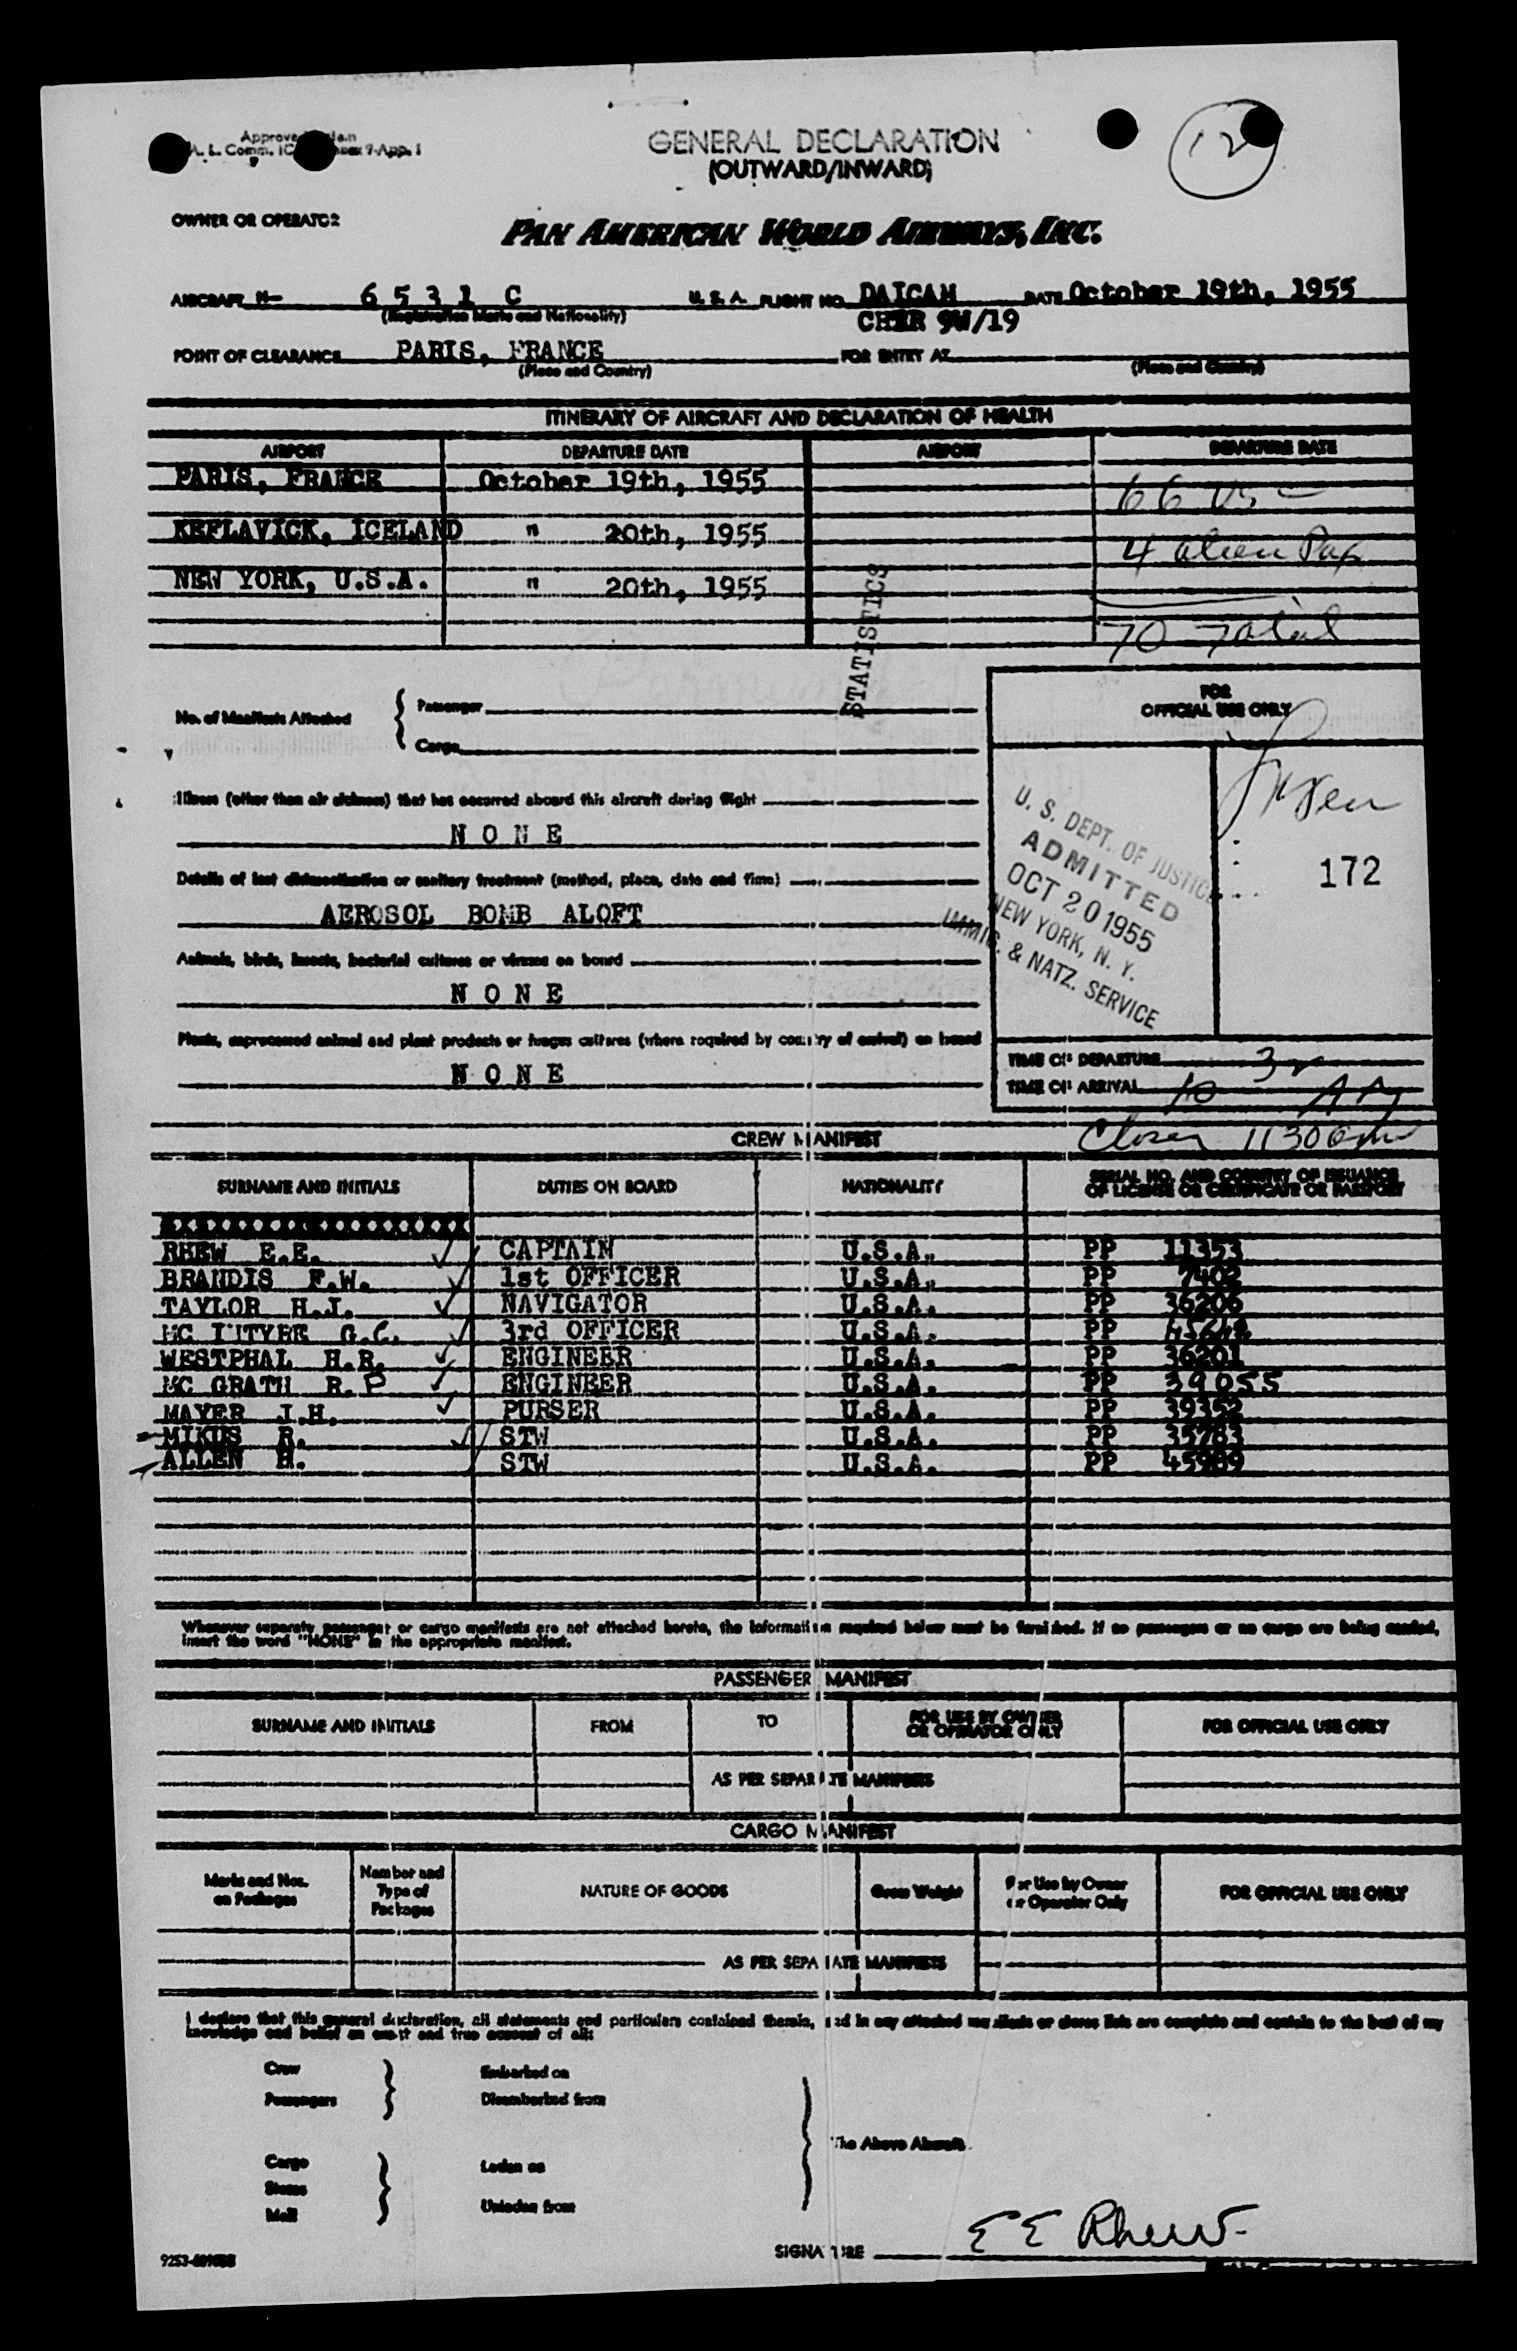 GENERAL DECLARATION
(OUTWARD/INWARD)
12
OWNER OR OPERATOR
PAN AMERICAN WORLD AIRWAYS, INC.
AIRCRAFT N- 6531 C U. S. A. FLIGHT NO. DAICAM DATE October 19th, 1955
(Registration Marks and Nationality)
/19
POINT OF CLEARANCE PARIS, FRANCE FOR ENTRY AT
(Place and Country) (Place and Country)
ITINERARY OF AIRCRAFT AND DECLARATION OF HEALTH
AIRPORT DEPARTURE DATE AIRPORT DEPARTURE DATE
PARIS, FRANCE October 19th, 1955
66 US
KEFLAVICK, ICELAND " 20th, 1955
4 alien Pax
NEW YORK, U.S.A. " 20th, 1955
70 Total
STATISTICS
FOR
OFFICIAL USE ONLY
No. of Manifests Attached { Passenger
Cargo
Illness (other than air sickness) that has occurred aboard this aircraft during flight
N O N E
Details of last disinsectization or sanitary treatment (method, place, date and time)
AEROSOL BOMB ALOFT
Animals, birds, insects, bacterial cultures or viruses on board
N O N E
Plants, unprocessed animal and plant products or fungus cultures (where required by country of arrival) on board
N O N E
U. S. DEPT. OF JUSTICE
ADMITTED
OCT 20 1955
NEW YORK, N. Y.
IMMIG. & NATZ. SERVICE
172
TIME OF DEPARTURE
TIME OF ARRIVAL 10
1130
CREW MANIFEST
SURNAME AND INITIALS DUTIES ON BOARD NATIONALITY SERIAL NO. AND COUNTRY OF ISSUANCE
OF LICENSE OR CERTIFICATE OR PASSPORT
RHEW E.E. CAPTAIN U.S.A. PP 11353
BRANDIS F.W. 1st OFFICER U.S.A. PP 7402
TAYLOR H.J. NAVIGATOR U.S.A. PP 36206
MC INTYRE G.C. 3rd OFFICER U.S.A. PP
WESTPHAL H.R. ENGINEER U.S.A. PP 36201
MC GRATH R.P ENGINEER U.S.A. PP 39055
MAYER J.H. PURSER U.S.A. PP 39352
MIKUS R. STW U.S.A. PP 35783
ALLEN H. STW U.S.A. PP 45989
Whenever separate passenger or cargo manifests are not attached hereto, the information required below must be furnished. If no passengers or no cargo are being carried,
insert the word "NONE" in the appropriate manifest.
PASSENGER MANIFEST
SURNAME AND INITIALS FROM TO FOR USE BY OWNER
OR OPERATOR ONLY FOR OFFICIAL USE ONLY
AS PER SEPARATE MANIFESTS
CARGO MANIFEST
Marks and Nos.
on Packages Number and
Type of
Packages NATURE OF GOODS Gross Weight For Use by Owner
or Operator Only FOR OFFICIAL USE ONLY
AS PER SEPARATE MANIFESTS
I declare that this general declaration, all statements and particulars contained therein, and in any attached manifests or stores lists are complete and contain to the best of my
knowledge and belief an exact and true account of all:
Crew } Embarked on
Passengers Disembarked from
The Above Aircraft.
Cargo Laden on
Stores }
Mail Unladen from
SIGNATURE E E Rhew